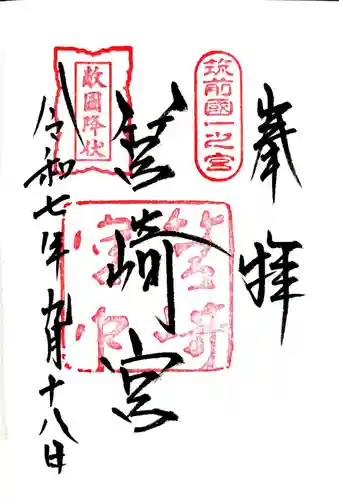 奉拝
筑前國一之宮
筥崎宮
敵國降伏
筥崎宮印
令和七年九月十八日